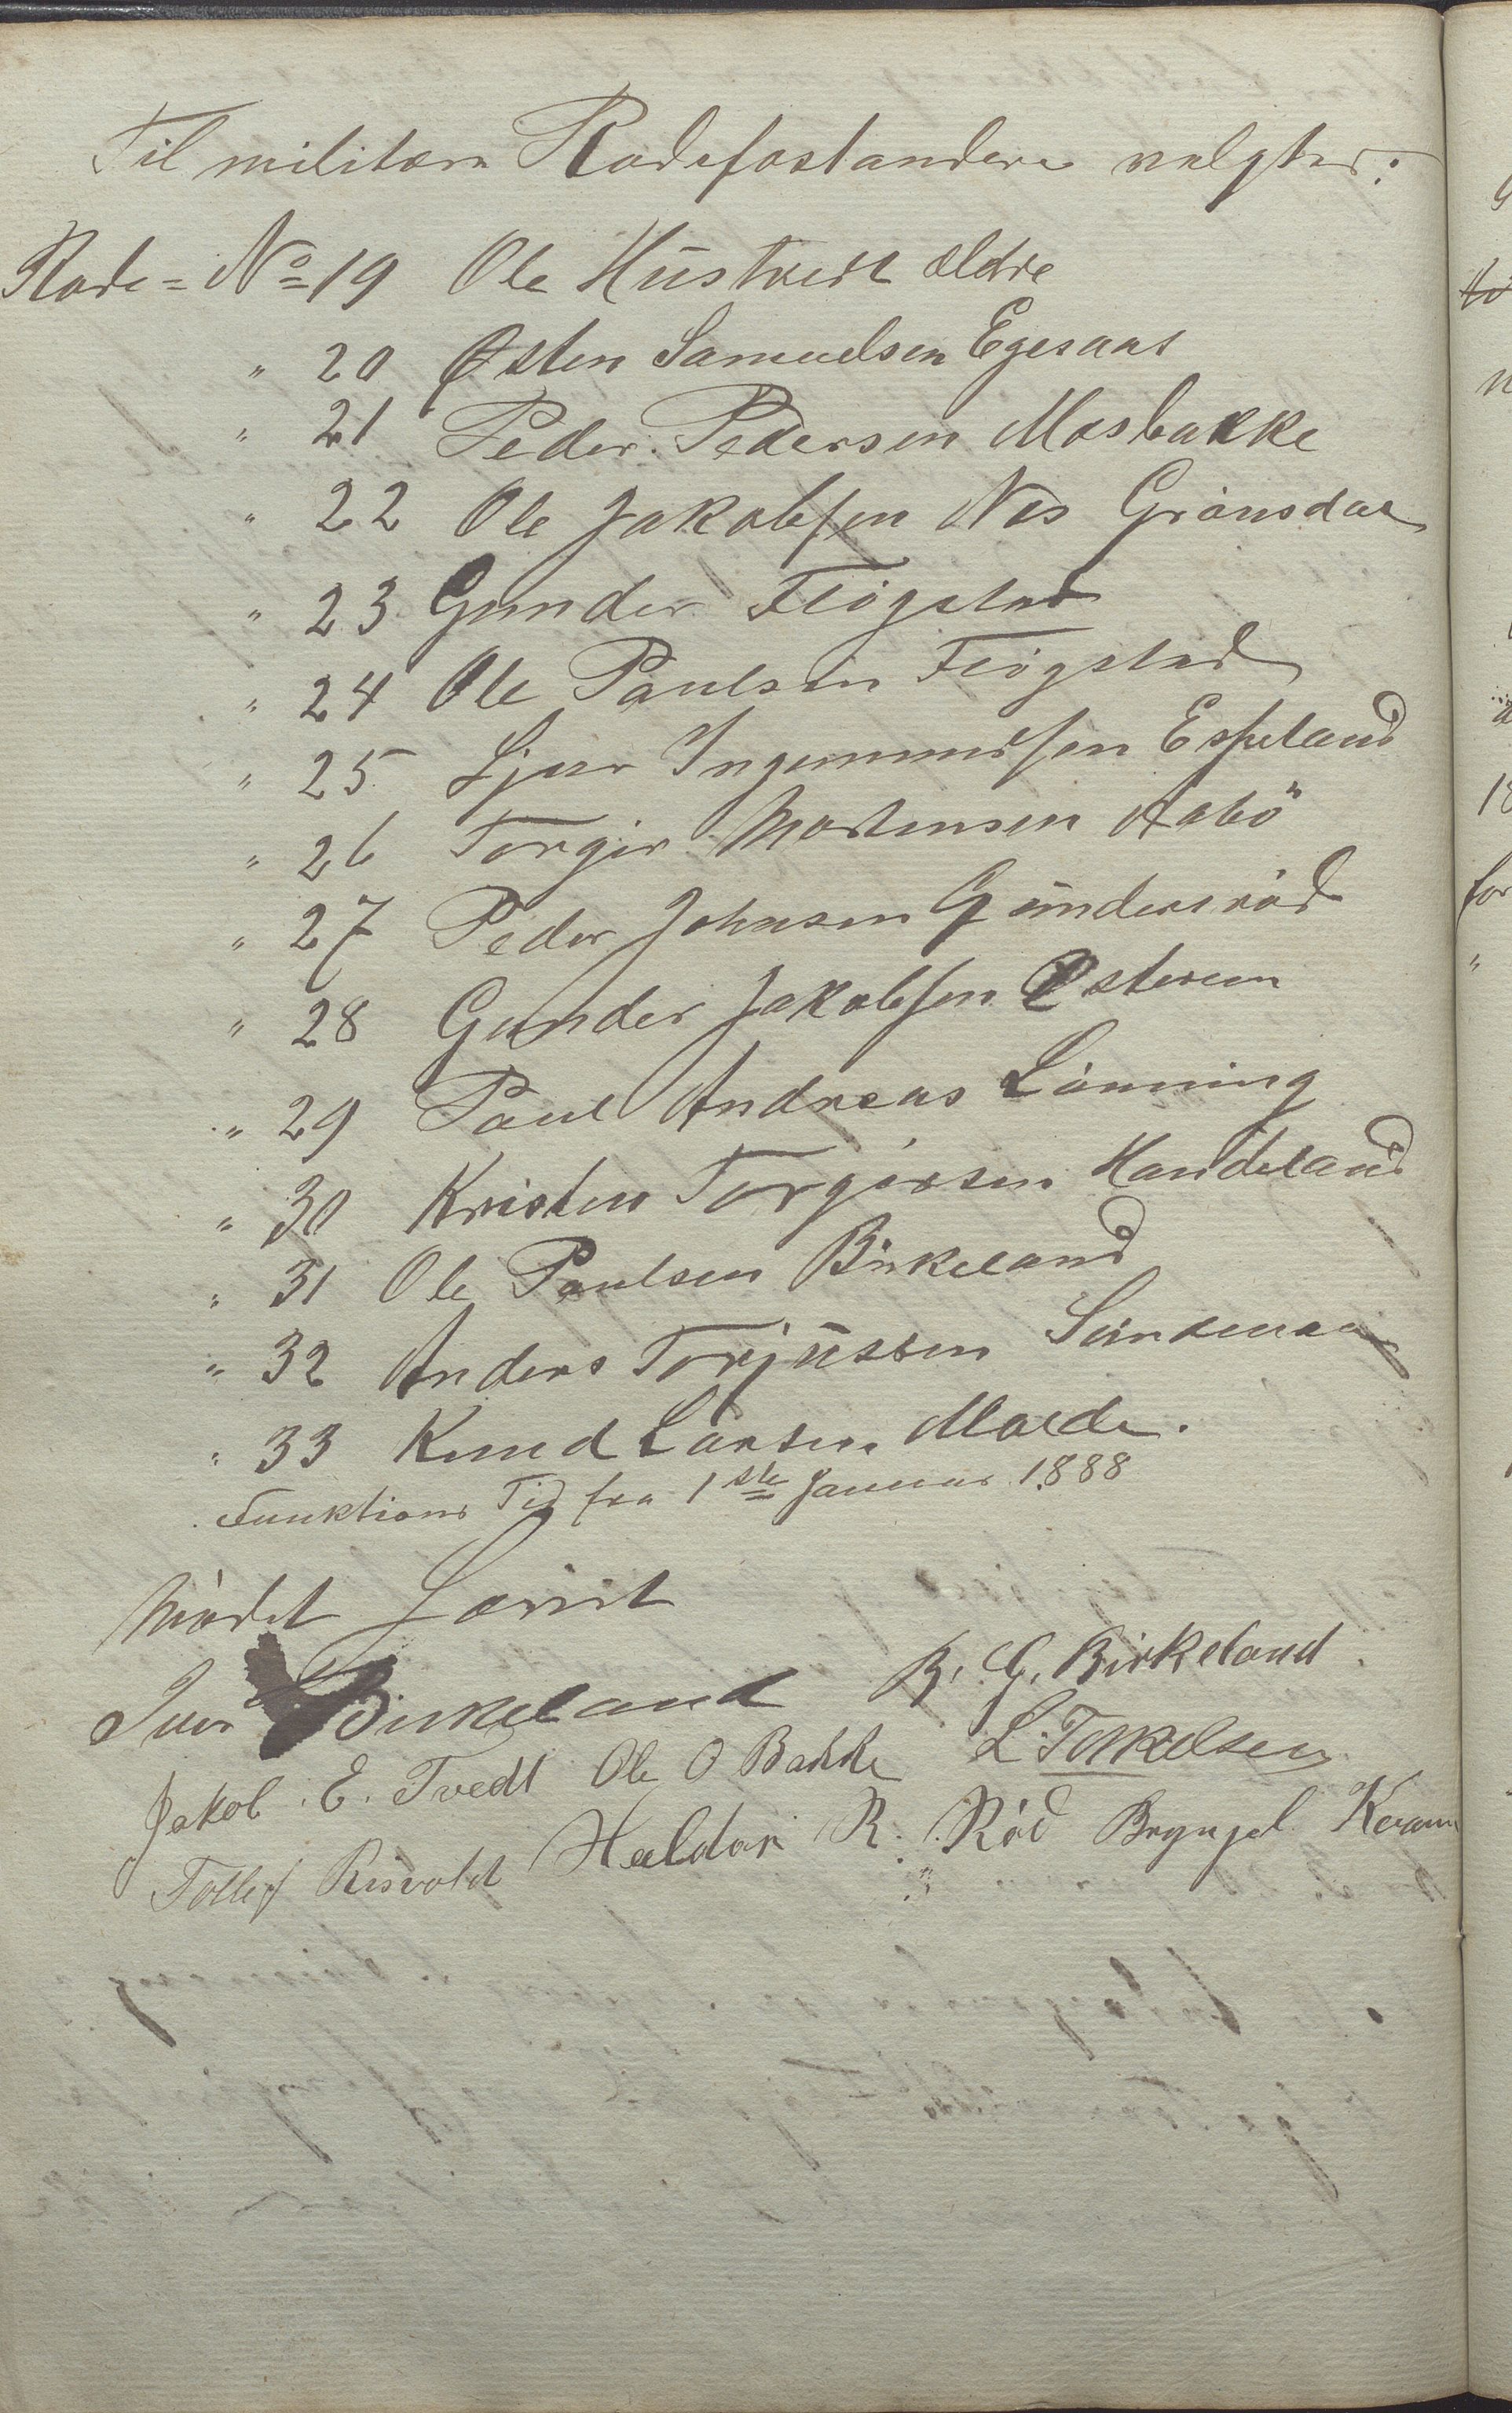 Til militære Rodeforstandere valgtes:
Rode = No 19 Ole Hustvedt ældre
" 20 Østen Samuelsen Egesaas
" 21 Peder Pedersen Mosbakke
" 22 Ole Jakobsen Nes Grönsdal
" 23 Gunder Flögstad
" 24 Ole Paulsen Flögstad
" 25 Sjur Ingemundsen Espeland
" 26 Torger Mortensen Aabö
" 27 Peder Johnsen Gundersröd
" 28 Gunder Jakobsen Østerum
" 29 Paul Andreas Lönning
" 30 Kristen Torgersen Handeland
" 31 Ole Paulsen Birkeland
" 32 Anders Torjussen
" 33 Knud Larsen Molde.
Funktions Tid fra 1ste Januar 1888
Mödet hævet
Iver Birkeland B. G. Birkeland
Jakob E. Tvedt Ole O Bakke L. Torkelsen
Tollef Risvold Haldor R. Röd Bryngel